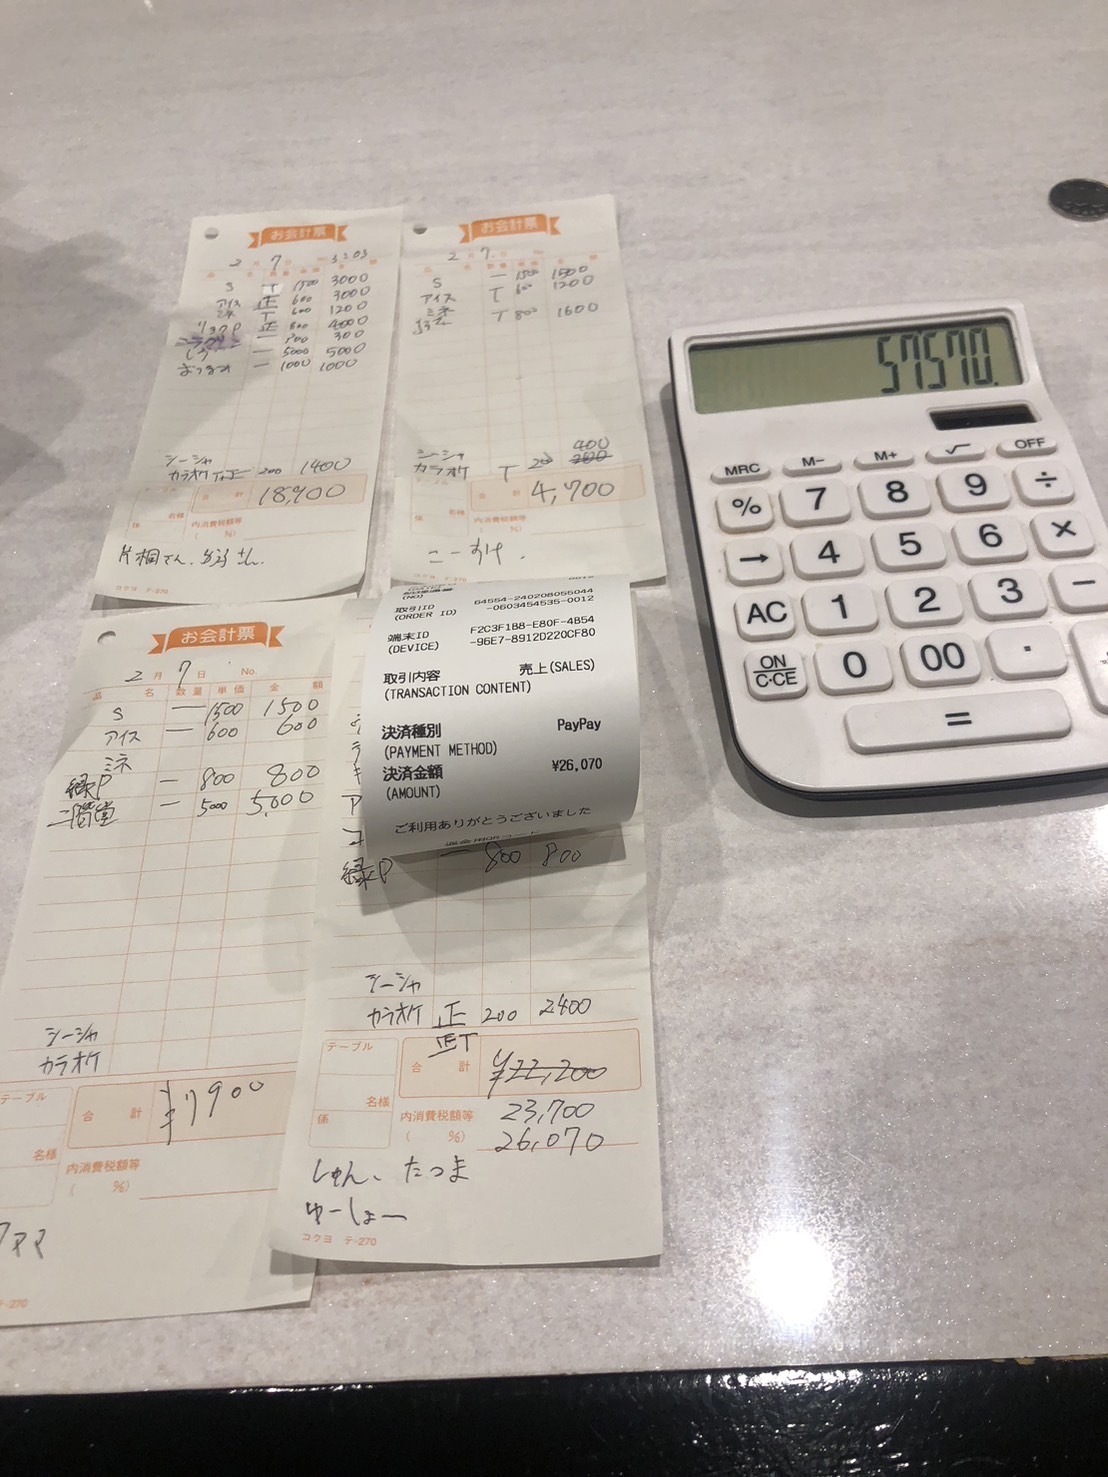 お会計票
2月7日 3:03
S T 1500 3000
アイス 正 600 3000
ミネ T 600 1200
正 800 4000
一 300 300
一 5000 5000
おつまみ 一 1000 1000
シーシャ
カラオケ 正T 200 1400
合計 18,900
内消費税額等
( %)
係 名様
片桐さん、
コクヨ テ-270
お会計票
2月7日
S 一 1500 1500
アイス T 600 1200
ミネ
T 800 1600
400
シーシャ
カラオケ T 200
合計 4,700
内消費税額等
( %)
係 名様
こーすけ、
お会計票
2月7日 No.
品名 数量 単価 金額
S 一 1500 1500
アイス 一 600 600
ミネ
緑P 一 800 800
二階堂 一 5000 5,000
シーシャ
カラオケ
テーブル
合計 ¥7900
名様
内消費税額等
( %)
テ-270
取引ID 64554-240208055044
(ORDER ID) -0603454535-0012
端末ID F2C3F1B8-E80F-4B54
(DEVICE) -96E7-8912D220CF80
取引内容 売上(SALES)
(TRANSACTION CONTENT)
決済種別 PayPay
(PAYMENT METHOD)
決済金額 ¥26,070
(AMOUNT)
ご利用ありがとうございました
緑P 一 800 800
シーシャ
カラオケ 正正T 200 2400
テーブル
合計 ¥22,200
名様
係 内消費税額等 23,700
( %) 26,070
しゅん、たつま
ゆーしょー
コクヨ テ-270
57570.
MRC M- M+ √ OFF
% 7 8 9 ÷
→ 4 5 6 ×
AC 1 2 3 −
ON/C·CE 0 00 ·
=